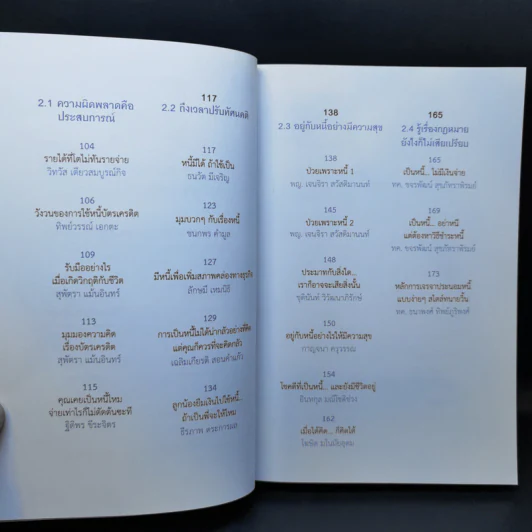 2.1 ความผิดพลาดคือ
ประสบการณ์
104
รายได้ที่โตไม่ทันรายจ่าย
วิทวัส เดียวสมบูรณ์กิจ
106
วังวนของการใช้หนี้บัตรเครดิต
ทิพย์วรรณ์ เอกตะ
109
รับมืออย่างไร
เมื่อเกิดวิกฤติกับชีวิต
สุพัตรา แม้นอินทร์
113
มุมมองความคิด
เรื่องบัตรเครดิต
สุพัตรา แม้นอินทร์
115
คุณเคยเป็นหนี้ไหม
จ่ายเท่าไรก็ไม่ตัดต้นซะที
ฐิติพร
117
2.2 ถึงเวลาปรับทัศนคติ
117
หนี้มีได้ ถ้าใช้เป็น
ธนวัต มีเจริญ
123
มุมบวกๆ กับเรื่องหนี้
ชนกพร คำมูล
127
มีหนี้เพื่อเพิ่มสภาพคล่องทางธุรกิจ
ลักษมี
129
การเป็นหนี้ไม่ได้น่ากลัวอย่างที่คิด
แต่คุณก็ควรที่จะคิดกลัว
เฉลิมเกียรติ สอนคำแก้ว
134
ลูกน้องยืมเงินไปใช้หนี้...
ถ้าเป็นพี่จะให้ไหม
ธีรภาพ
138
2.3 อยู่กับหนี้อย่างมีความสุข
138
ป่วยเพราะหนี้ 1
พญ. เจนจิรา สวัสดิมานนท์
145
ป่วยเพราะหนี้ 2
พญ. เจนจิรา สวัสดิมานนท์
148
ประมาทกับสิ่งใด...
เราก็อาจจะเสียสิ่งนั้น
ชุตินันท์ วิวัฒนาภิรักษ์
150
อยู่กับหนี้อย่างไรให้มีความสุข
กาญจนา
154
โชคดีที่เป็นหนี้... และยังมีชีวิตอยู่
162
เมื่อได้คิด... ก็คิดได้
โฆษิต
165
2.4 รู้เรื่องกฎหมาย
ยังไงก็ไม่เสียเปรียบ
165
เป็นหนี้... ไม่มีเงินจ่าย
169
เป็นหนี้... อย่าหนี
แต่ต้องหาวิธีชำระหนี้
173
หลักการเจรจาประนอมหนี้
แบบง่ายๆ สไตล์ทนายวิ่น